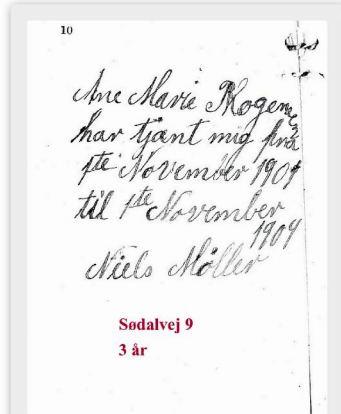 10
Ane Marie Mogensen
har tjent mig fra
1ste November 1901
til 1ste November
1904
Niels Møller
Sødalvej 9
3 år